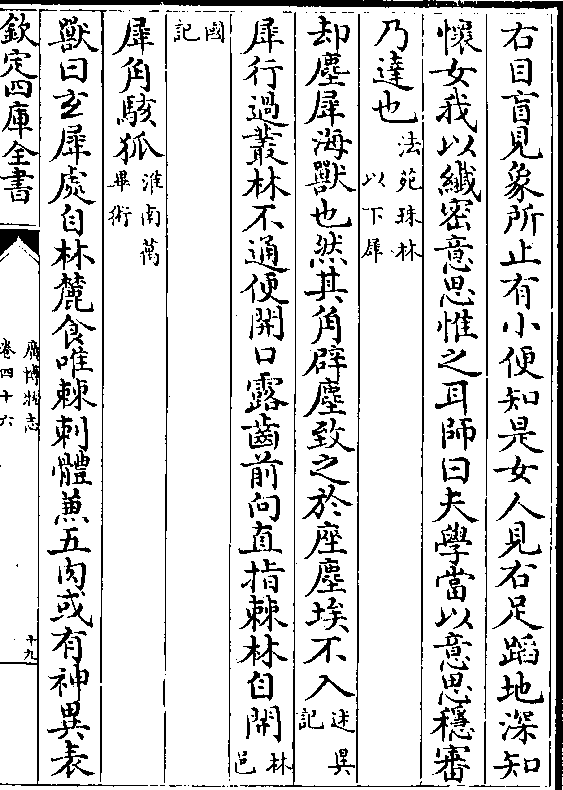 右目盲見象所止有小便知是女人見右足蹈地深知
懐女我以纎宻意思惟之耳師曰夫學當以意思穩審
乃達也法苑珠林以下犀
却塵犀海獸也然其角辟塵致之於座塵埃不入述異記
犀行過叢林不通便開口露齒前向直指棘林自開林邑國記
犀角駭狐淮南萬畢術
獸曰玄犀處自林麓食唯棘刺體兼五肉或有神異表
欽定四庫全書
廣博物志
卷四十六
十九